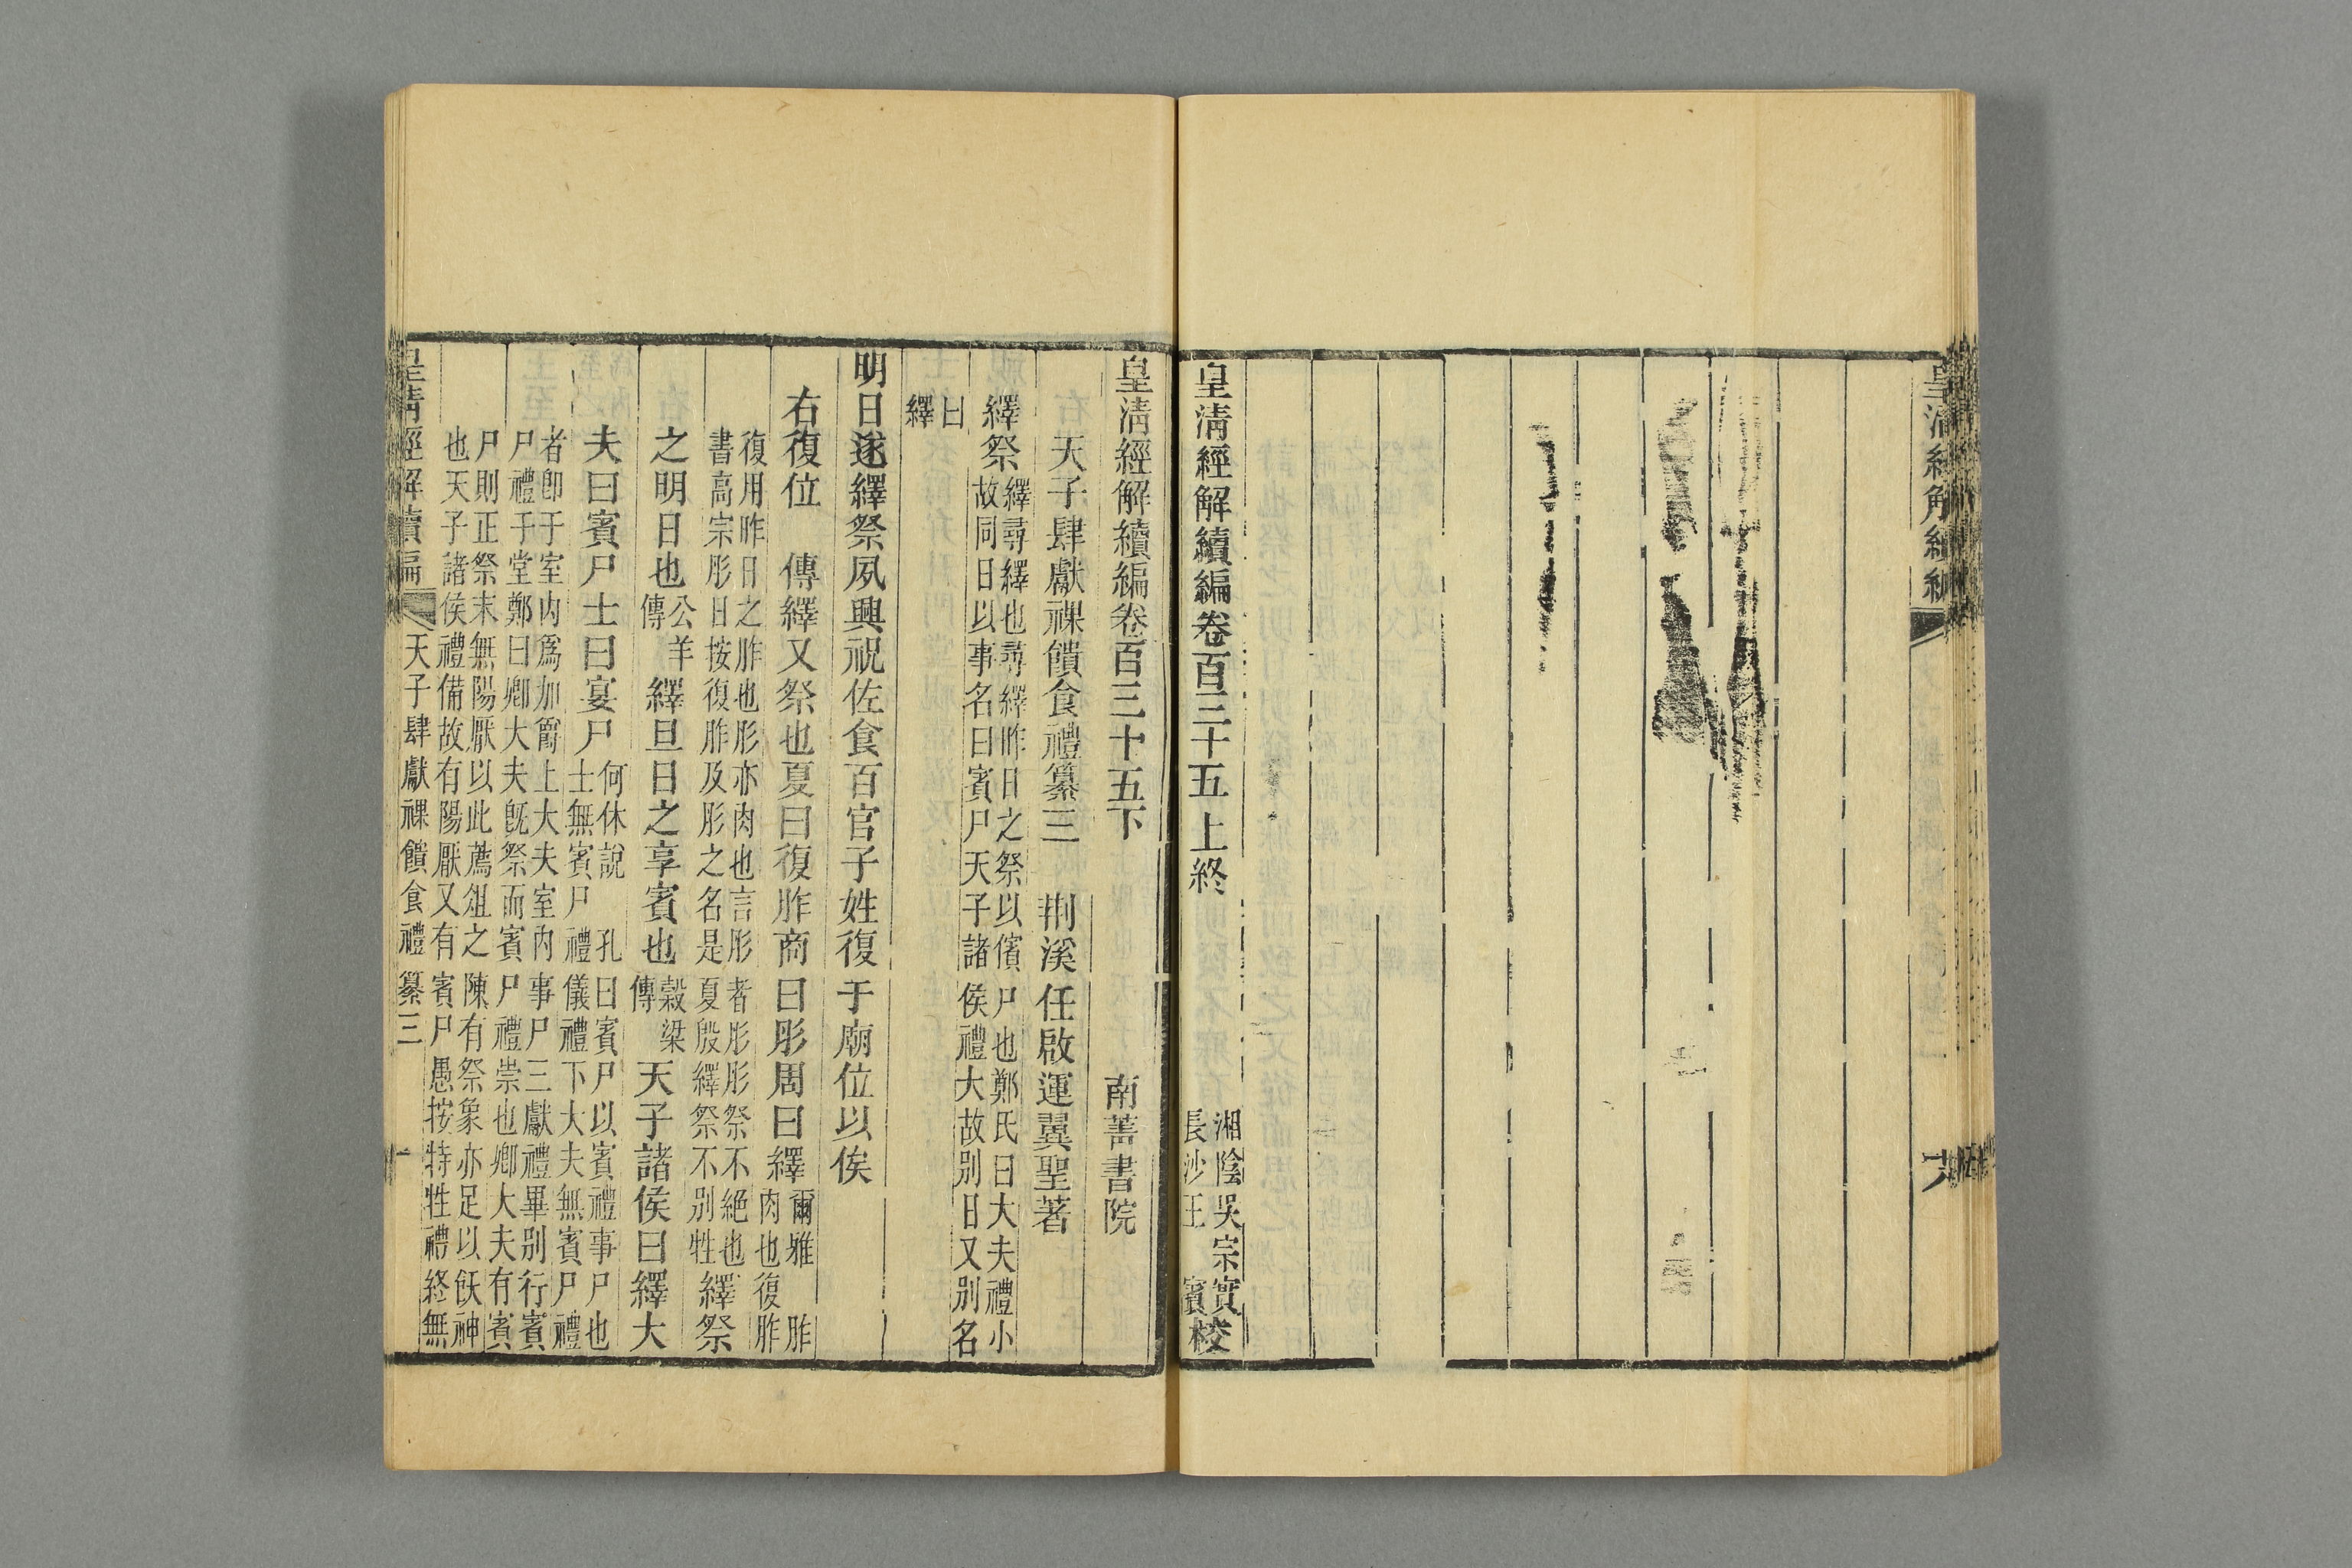 皇清經解續編
皇清經解續編卷百三十五上終
湘陰吳宗實
長沙王　賓
校
皇清經解續編卷百三十五下　南菁書院
天子肆獻祼饋食禮纂三　荆溪任啟運翼聖著
繹祭
繹尋繹也尋繹昨日之祭以儐尸也鄭氏曰大夫禮小
故同日以事名曰賓尸天子諸侯禮大故别日又别名
曰
繹
明日遂繹祭夙興祝佐食百官子姓復于廟位以俟
右復位　傳繹又祭也夏曰復胙商曰肜周曰繹
爾雅　胙
肉也復胙
復用昨日之胙也肜亦肉也言肜者肜肜祭不絕也
書高宗肜日按復胙及肜之名是夏殷繹祭不别牲
繹祭
之明日也
公羊
傳
繹旦日之享賓也
穀梁
傳
天子諸侯曰繹大
夫曰賓尸士曰宴尸
何休說　孔曰賓尸以賓禮事尸也
士無賓尸　禮儀禮下大夫無賓尸禮
者卽于室内爲加爵上大夫室内事尸三獻禮畢别行賓
尸禮于堂鄭曰卿大夫旣祭而賓尸禮崇也卿大夫有賓
尸則正祭末無陽厭以此薦俎之陳有祭象亦足以飫神
也天子諸侯禮備故有陽厭又有賓尸愚按特牲禮終無
皇清經解續編　天子肆獻祼饋食禮纂三